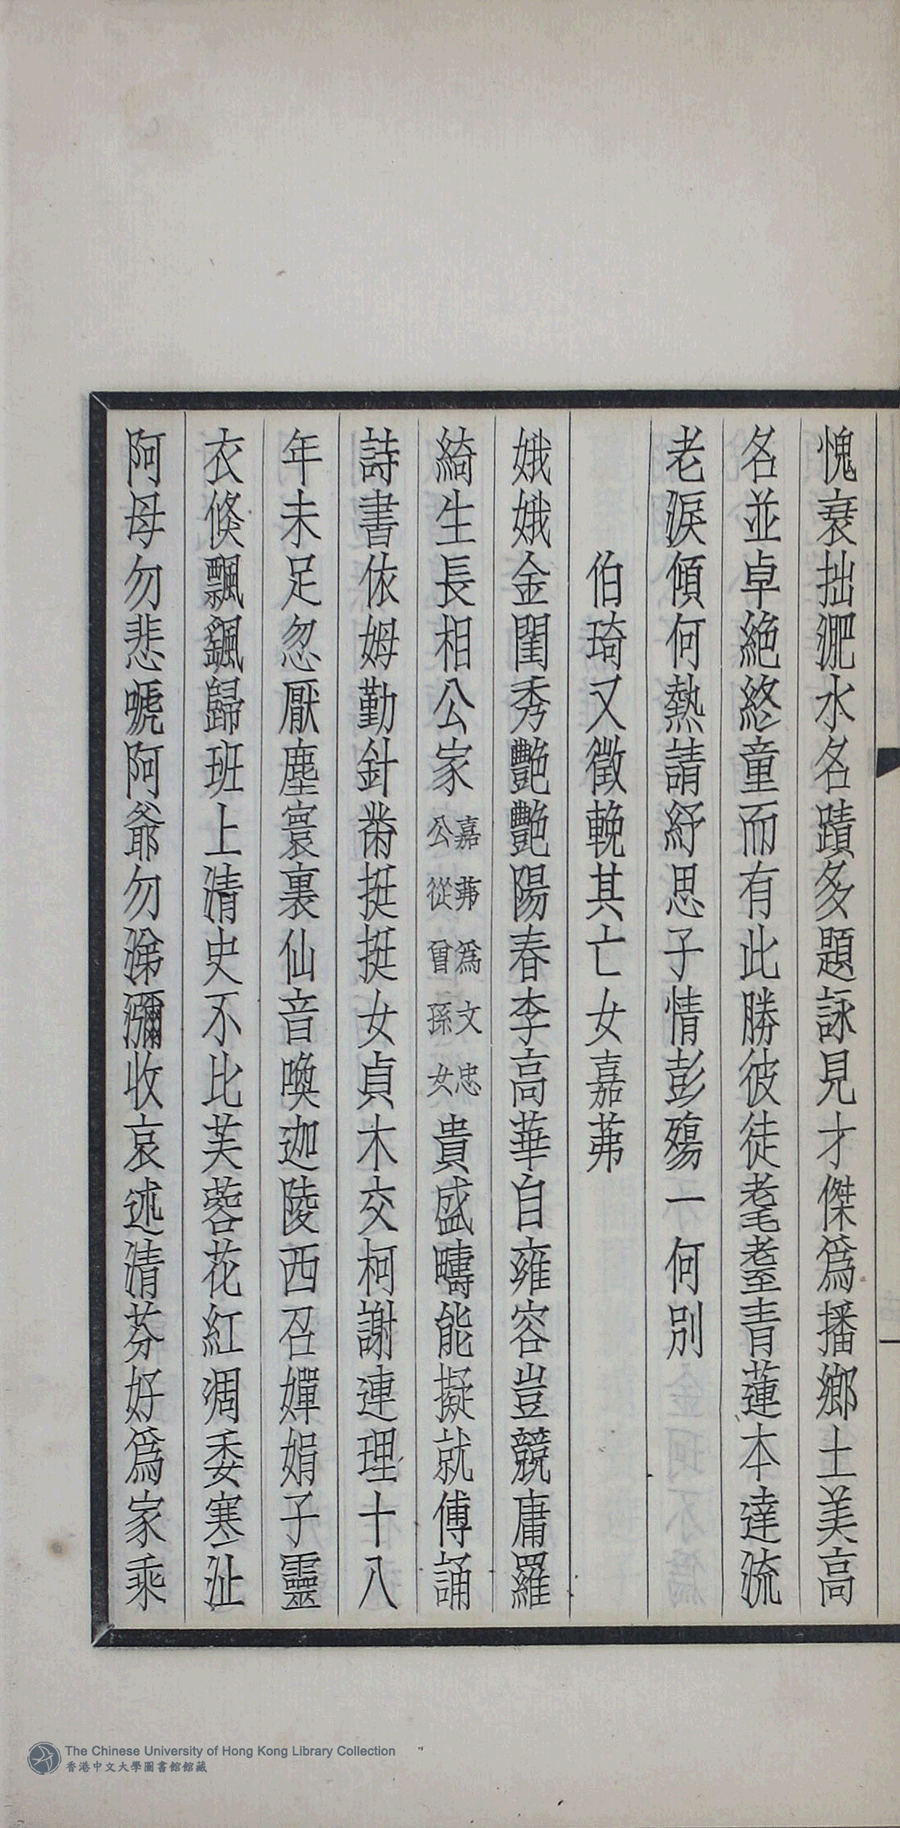 愧衰拙淝水名蹟多題詠見才傑為播鄉土美高
名並卓絕終童而有此勝彼徒耄耋青蓮本達流
老淚傾何熱請紓思子情彭殤一何別
伯琦又徵輓其亡女嘉茀
娥娥金閨秀艷艷陽春李高華自雍容豈競庸羅
綺生長相公家嘉茀為文忠公從曾孫女貴盛疇能擬就傅誦
詩書依姆勤針黹挺挺女貞木交柯謝連理十八
年未足忽厭塵寰裏仙音喚迦陵西召嬋娟子靈
衣倏飄颻歸班上清史不比芙蓉花紅凋委寒沚
阿母勿悲嗁阿爺勿涕瀰收哀述清芬好為家乘
The Chinese University of Hong Kong Library Collection
香港中文大學圖書館館藏